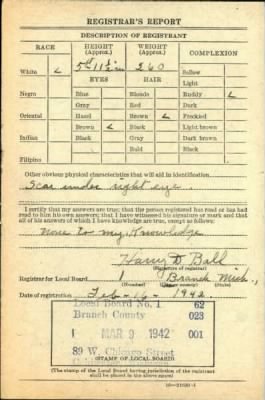 REGISTRAR'S REPORT
DESCRIPTION OF REGISTRANT
RACE HEIGHT (Approx.) WEIGHT (Approx.) COMPLEXION
5 ft 11 1/2 in 260
Sallow
White
Light
EYES HAIR
Ruddy
Negro Blue Blonde
Dark
Gray Red
Freckled
Oriental Hazel Brown
Light brown
Brown Black
Dark brown
Indian Black Gray
Black
Bald
Filipino
Other obvious physical characteristics that will aid in identification
Scar under right eye
I certify that my answers are true; that the person registered has read or has had
read to him his own answers; that I have witnessed his signature or mark and that
all of his answers of which I have knowledge are true, except as follows:
None to my Knowledge
Harry D. Ball
(Signature of registrar)
Registrar for Local Board 1 Branch Mich.,
(Number) (City or county) (State)
Date of registration Feb - 16 - 1942
Local Board No. 1 62
Branch County 023
1 MAR 9 1942 001
89 W. Chicago Street
(STAMP OF LOCAL BOARD)
(The stamp of the Local Board having jurisdiction of the registrant
shall be placed in the above space)